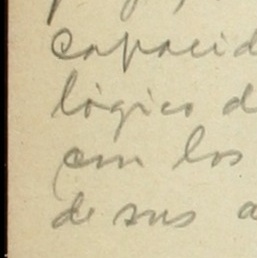 capacid
lógico d
con los
de sus a